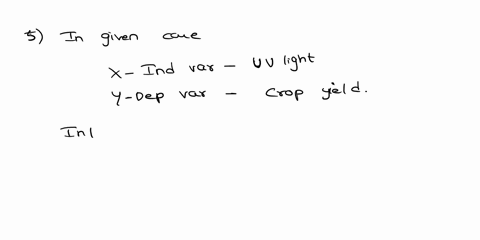 5) In given case
X- Ind var - UV light
Y-Dep var - Crop yield.
Inl